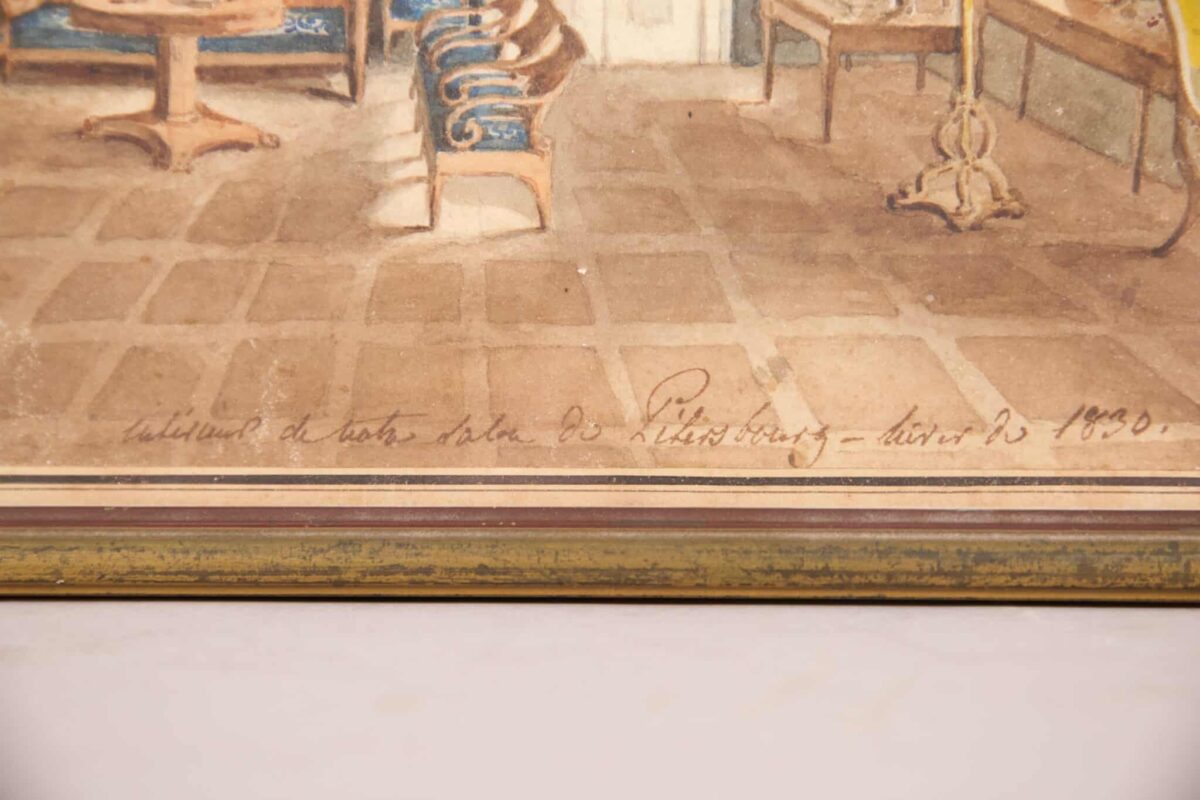 intérieur de notre salon de Pétersbourg – hiver de 1830.